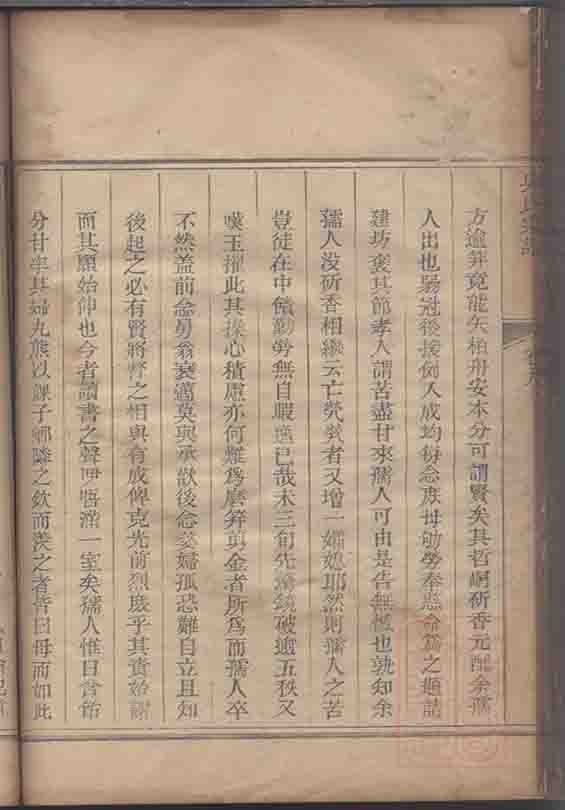 方逾笄竟能矢柏舟安本分可謂賢矣其哲嗣斫香元配余孺
人出也弱冠後援例入成均每念庶母劬勞奉慈命爲之題請
建坊褒其節孝人謂苦盡甘來孺人可由是告無憾也孰知余
孺人没斫香相繼云亡煢煢者又增一孀媳耶然則孺人之苦
豈徒在中饋勤勞無自暇逸已哉未三旬先鸞鏡破逾五秩又
嘆玉摧此其操心積慮亦何難爲磨笄與金者所爲而孺人卒
不然盖前念舅翁衰邁莫與承歡後念娑婦孤恐難自立且知
後起之必有賢將督之相與有成俾克光前烈庶乎其責始謝
而其願始伸也今者讀書之聲咿唔滿一室矣孺人惟日含飴
分甘率其婦丸熊以課子鄉隣之欽而羨之者皆曰母而如此